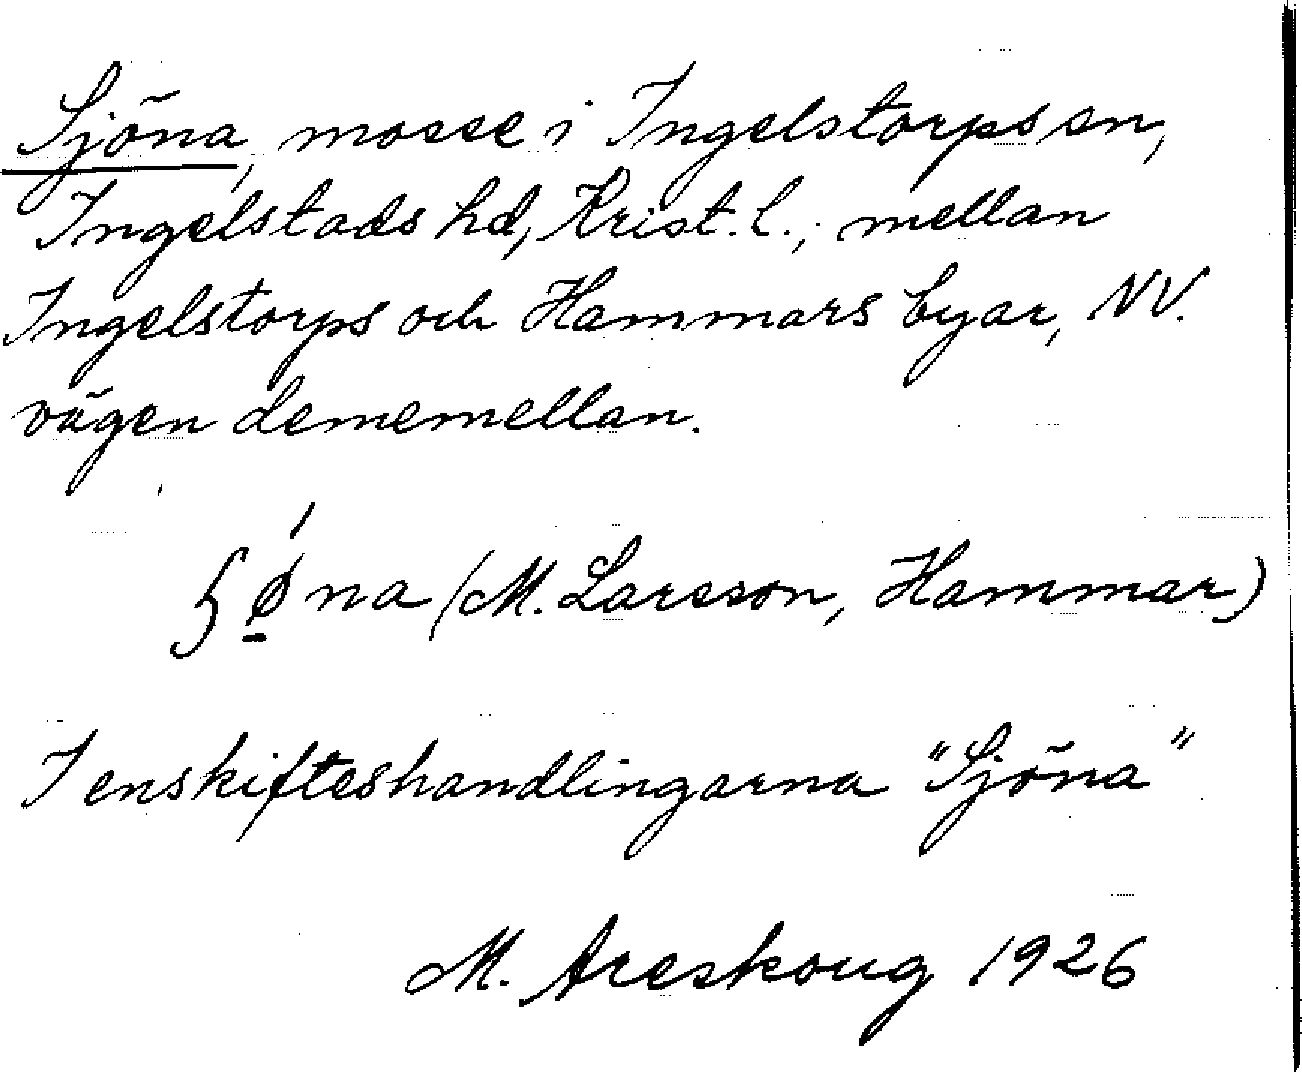 Sjöna, mosse i Ingelstorps sn,
Ingelstads hd, Krist. l., mellan
Ingelstorps och Hammars byar, NV.
vägen dememellan.
ʃǿ̱na (M. Larsson, Hammar)
I enskifteshandlingarna "Sjöna"
M. Areskoug 1926